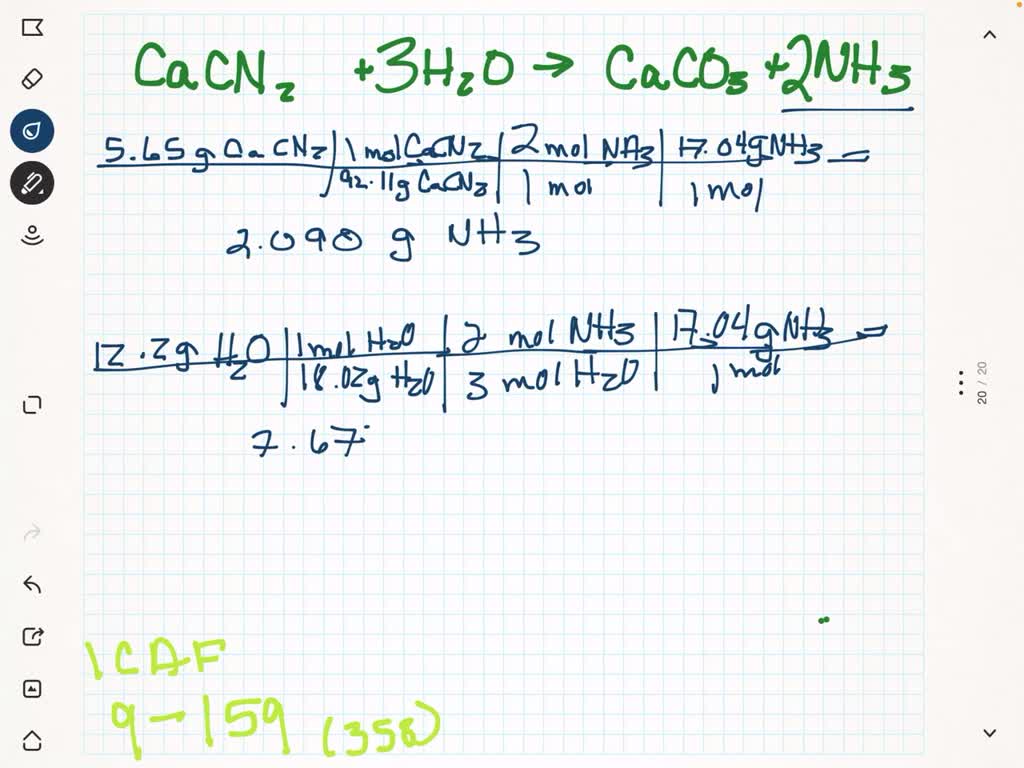 CaCN₂ + 3H₂O → CaCO₃ + 2NH₃
5.65 g CaCN₂ | 1 mol CaCN₂ | 2 mol NH₃ | 17.04 g NH₃ =
92.11 g CaCN₂ | 1 mol | 1 mol
2.090 g NH₃
12.2 g H₂O | 1 mol H₂O | 2 mol NH₃ | 17.04 g NH₃ =
18.02 g H₂O | 3 mol H₂O | 1 mol
7.67
20 / 20
ICAF
9-159 (358)